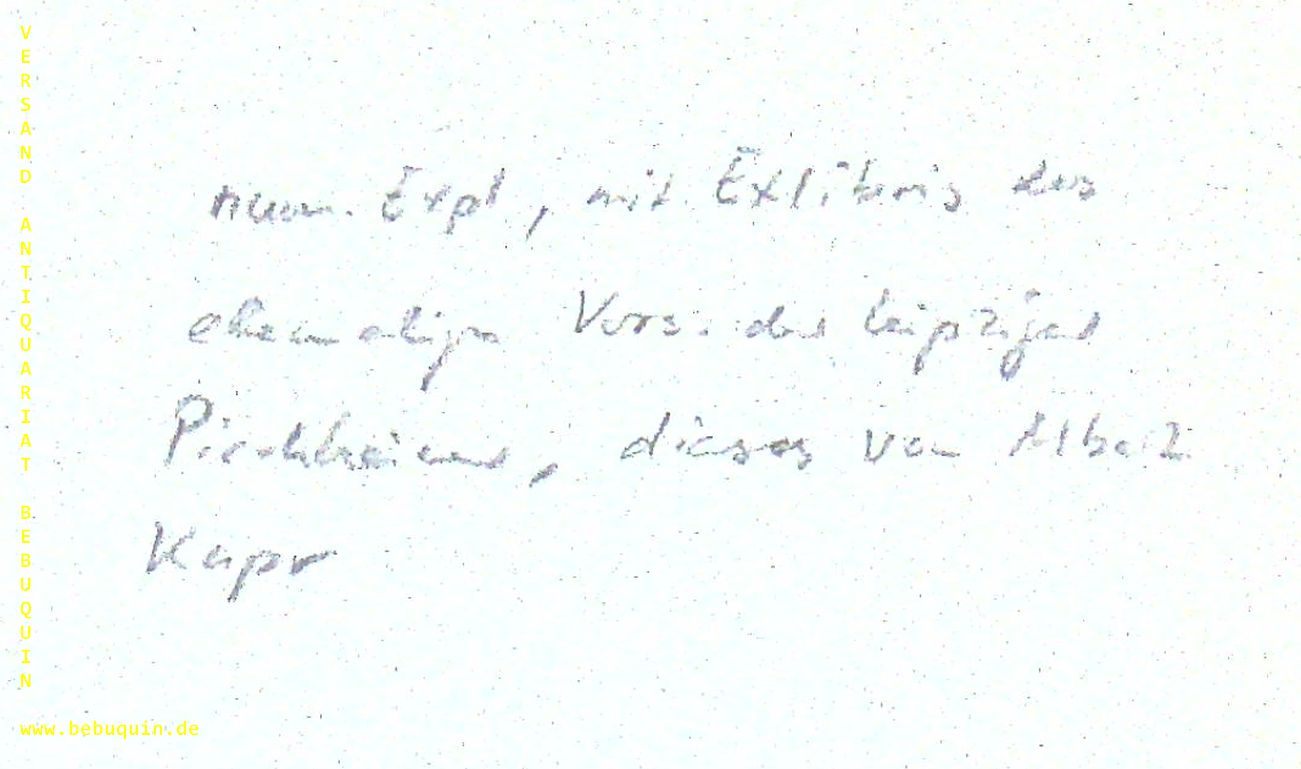 VERSAND ANTIQUARIAT BEBUQUIN
num. Expl, mit Exlibris des
ehemaligen Vors. der Leipziger
Pirckheimer, dieses von Albert
Kapr
www.bebuquin.de